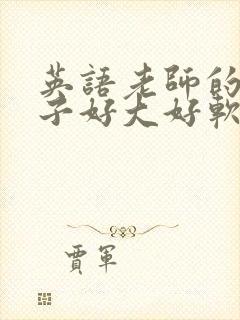 英語老師的
子好大好軟
賈軍